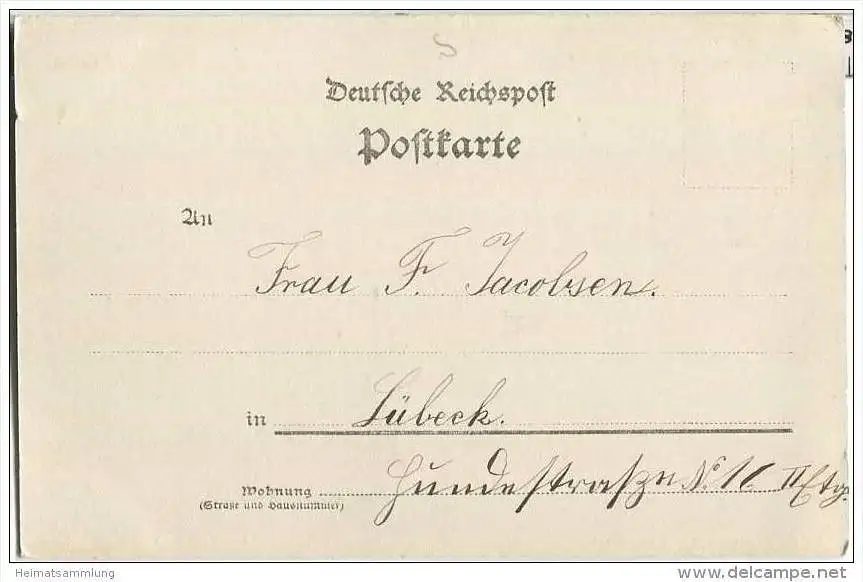 Deutsche Reichspost
Postkarte
An
Frau F. Jacobsen.
in Lübeck.
Wohnung Hundestraße No. 11 II Etg.
(Straße und Hausnummer)
Heimatsammlung
www.delcampe.net